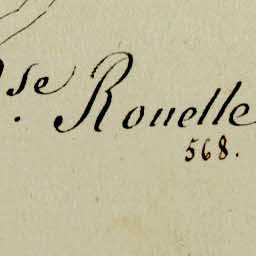 se. Rouelle
568.